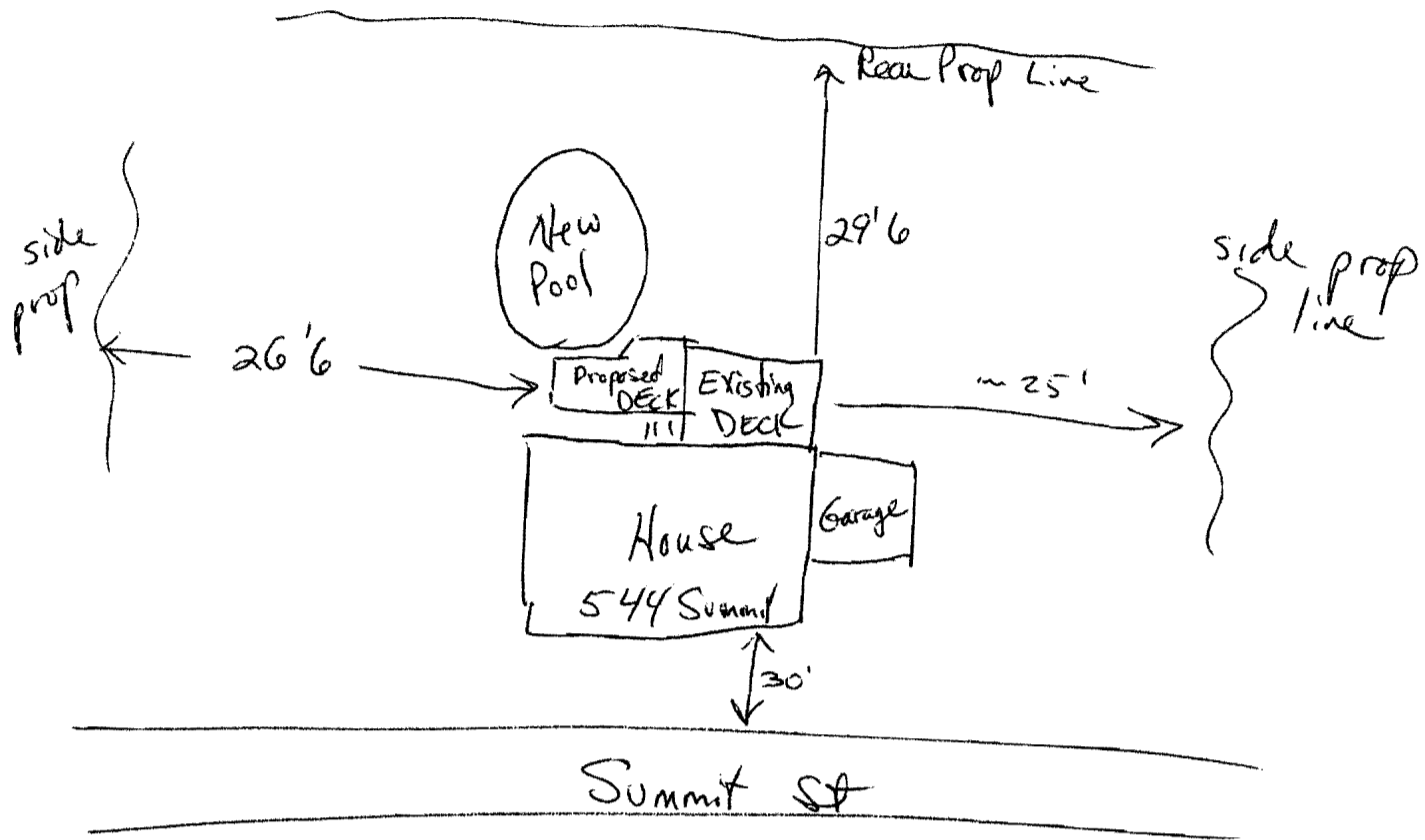 Rear Prop Line
New
Pool
29'6
side
prop
side prop
line
26'6
Proposed
DECK
Existing
DECK
~ 25'
House
544 Summit
Garage
30'
Summit St